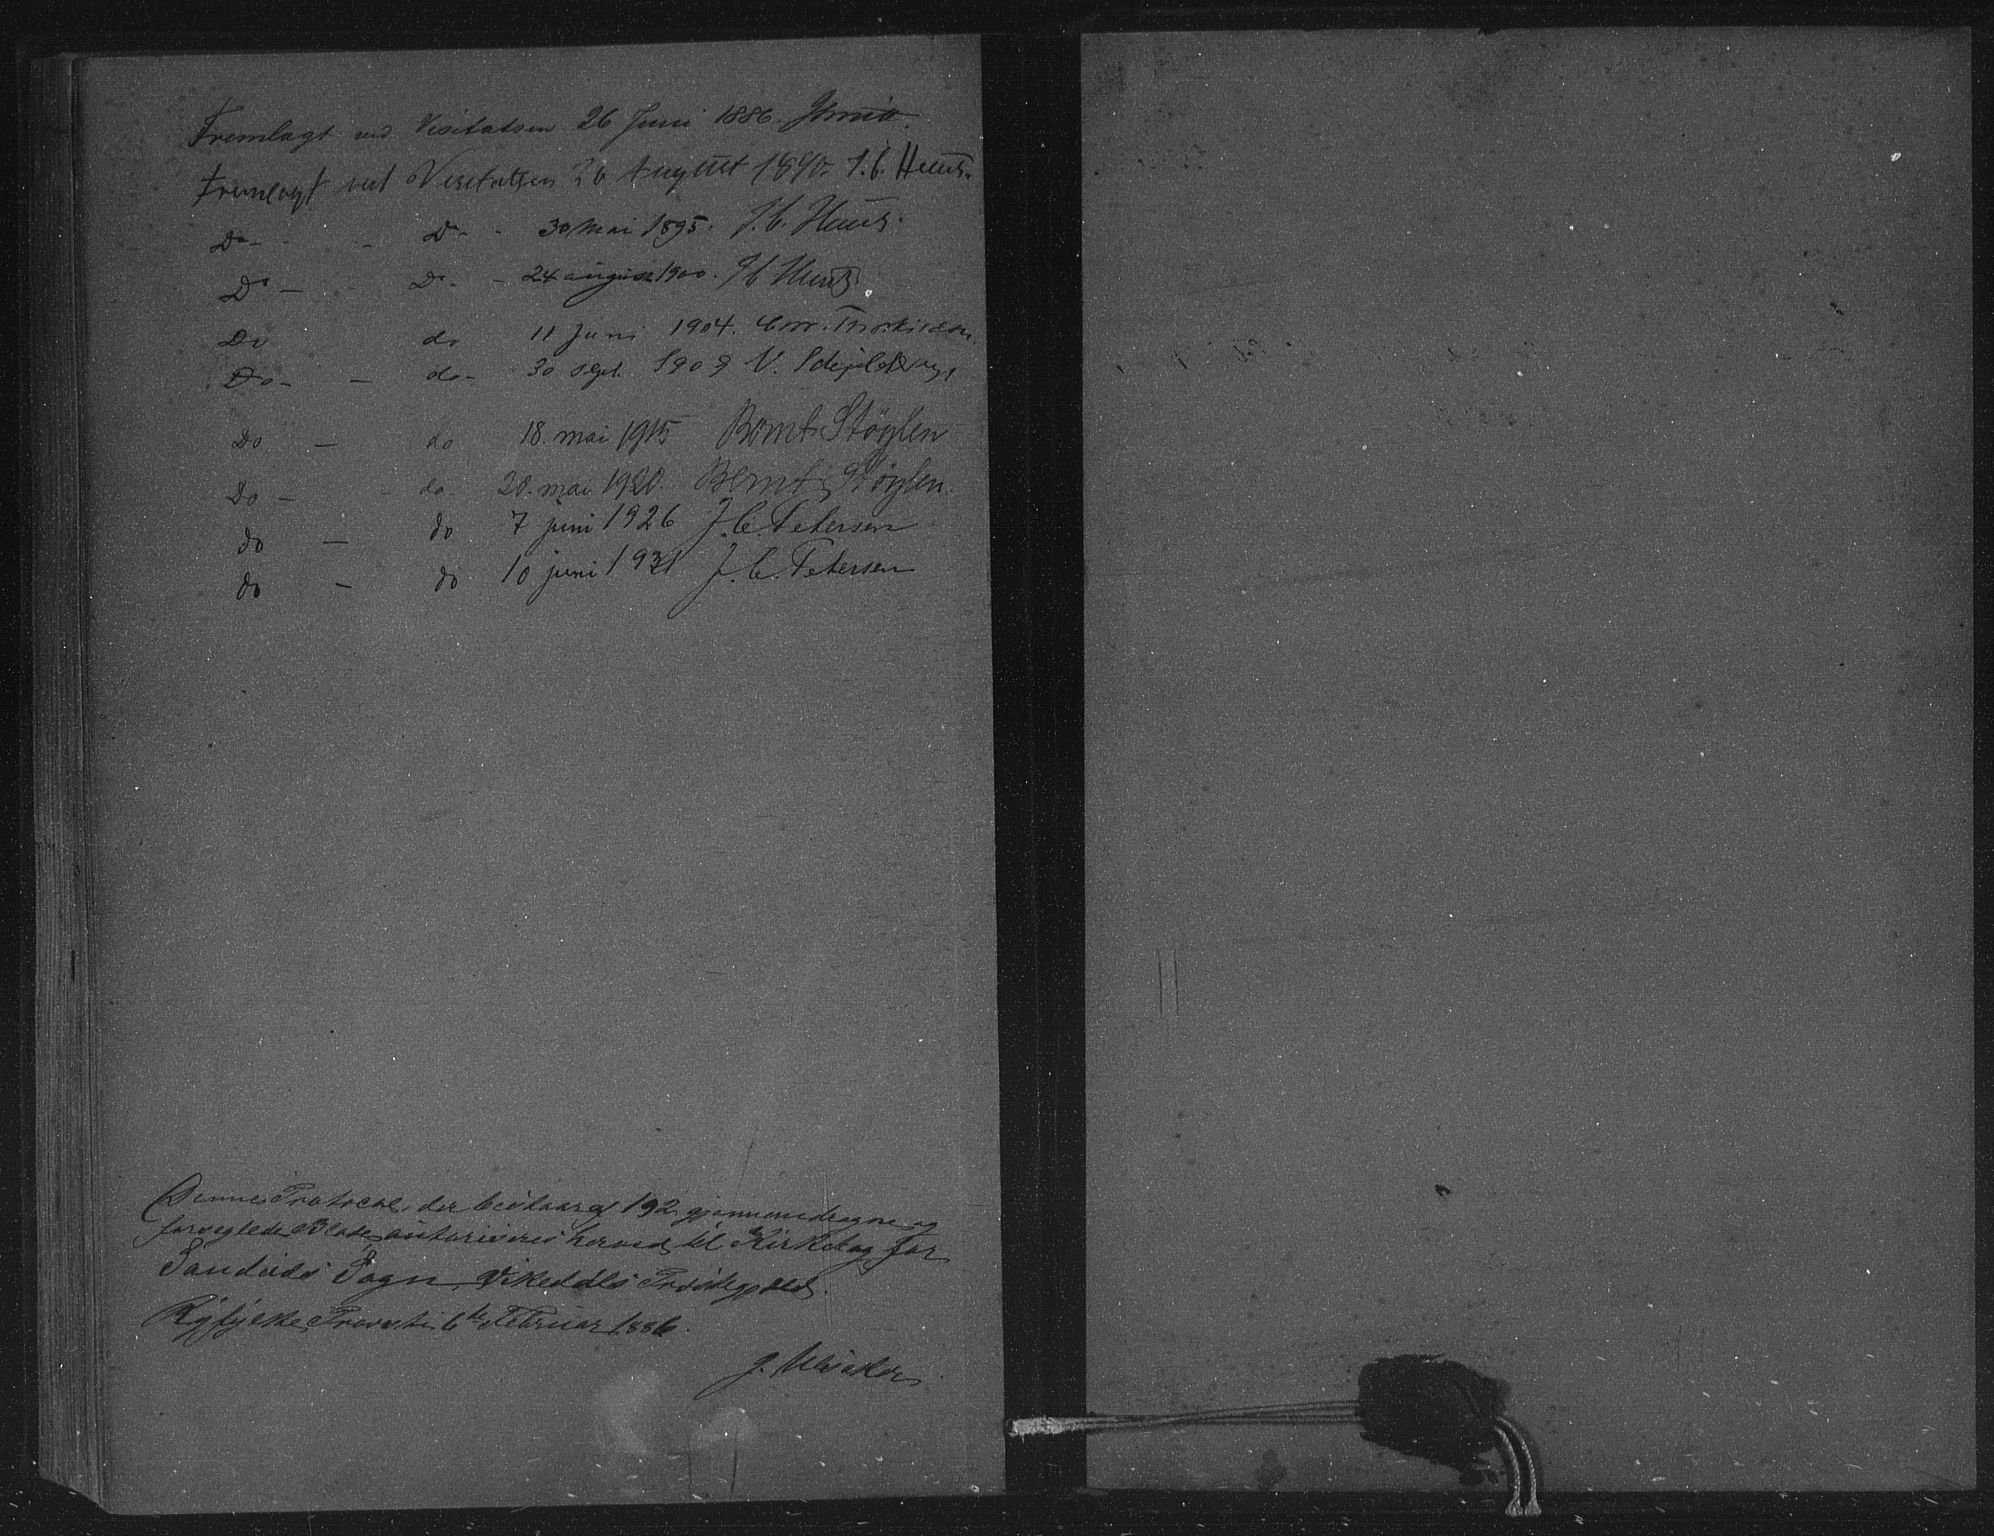 Fremlagt ved Visitatsen 26 Juni 1886.
Fremlagt ved Visitatsen 26 August 1890. J.C. Heuch.
Do - - Do - - 30 Mai 1895. J.C. Heuch.
Do - - Do - - 24 august 1900. J.C. Heuch.
Do do 11 Juni 1904. Chr. Thorkildsen.
Do - - do - 30 sept. 1909 V. Schjeldrup
Do - do 18. mai 1915 Bernt Støylen
Do - - do - 20. mai 1920. Bernt Støylen
do - do 7 juni 1926 J.C. Petersen
do - do 10 juni 1931 J.C. Petersen
Denne Protocol, der bestaar af 192 gjennemdragne og
forseglede Blade, autoriseres herved til Kirkebog for
Sandeids Sogn, Vikedals Præstegjæld.
Ryfylke Provsti 6te Februar 1886.